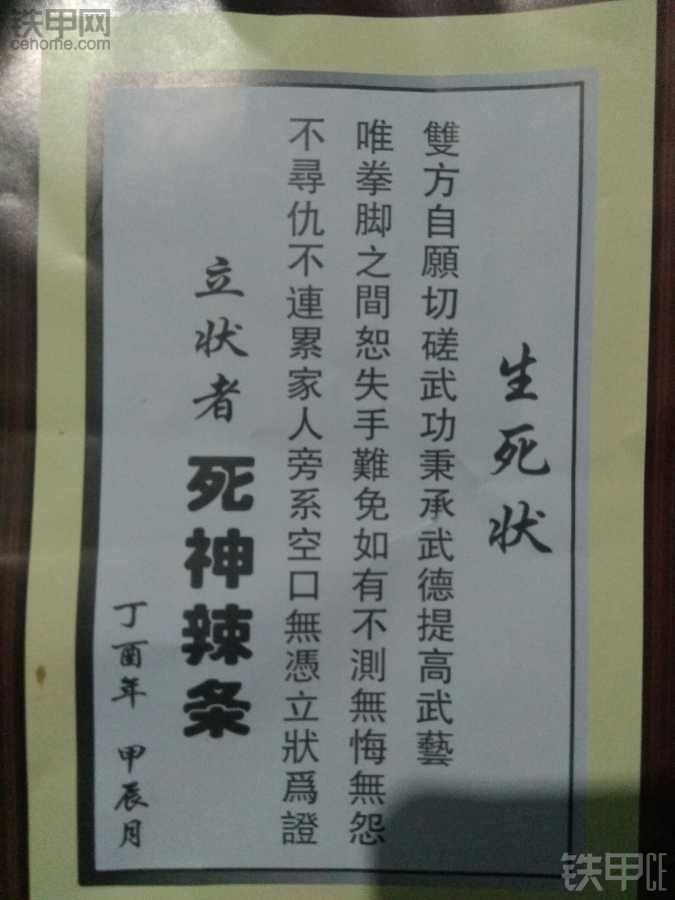 铁甲网
cehome.com
生死状
雙方自願切磋武功秉承武德提高武藝
唯拳脚之間恕失手難免如有不測無悔無怨
不尋仇不連累家人旁系空口無憑立狀爲證
立状者 死神辣条
丁酉年 甲辰月
铁甲CE